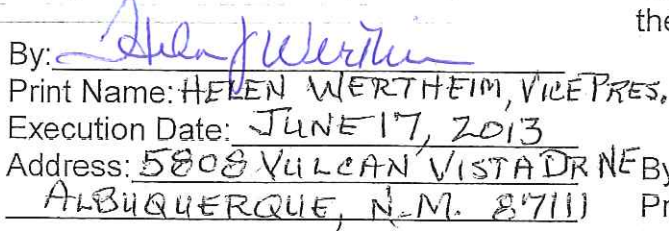 the
By: Helen J Wertheim
Print Name: HELEN WERTHEIM, VICE PRES.
Execution Date: JUNE 17, 2013
Address: 5808 VULCAN VISTA DR NE By
ALBUQUERQUE, N.M. 87111 Pr